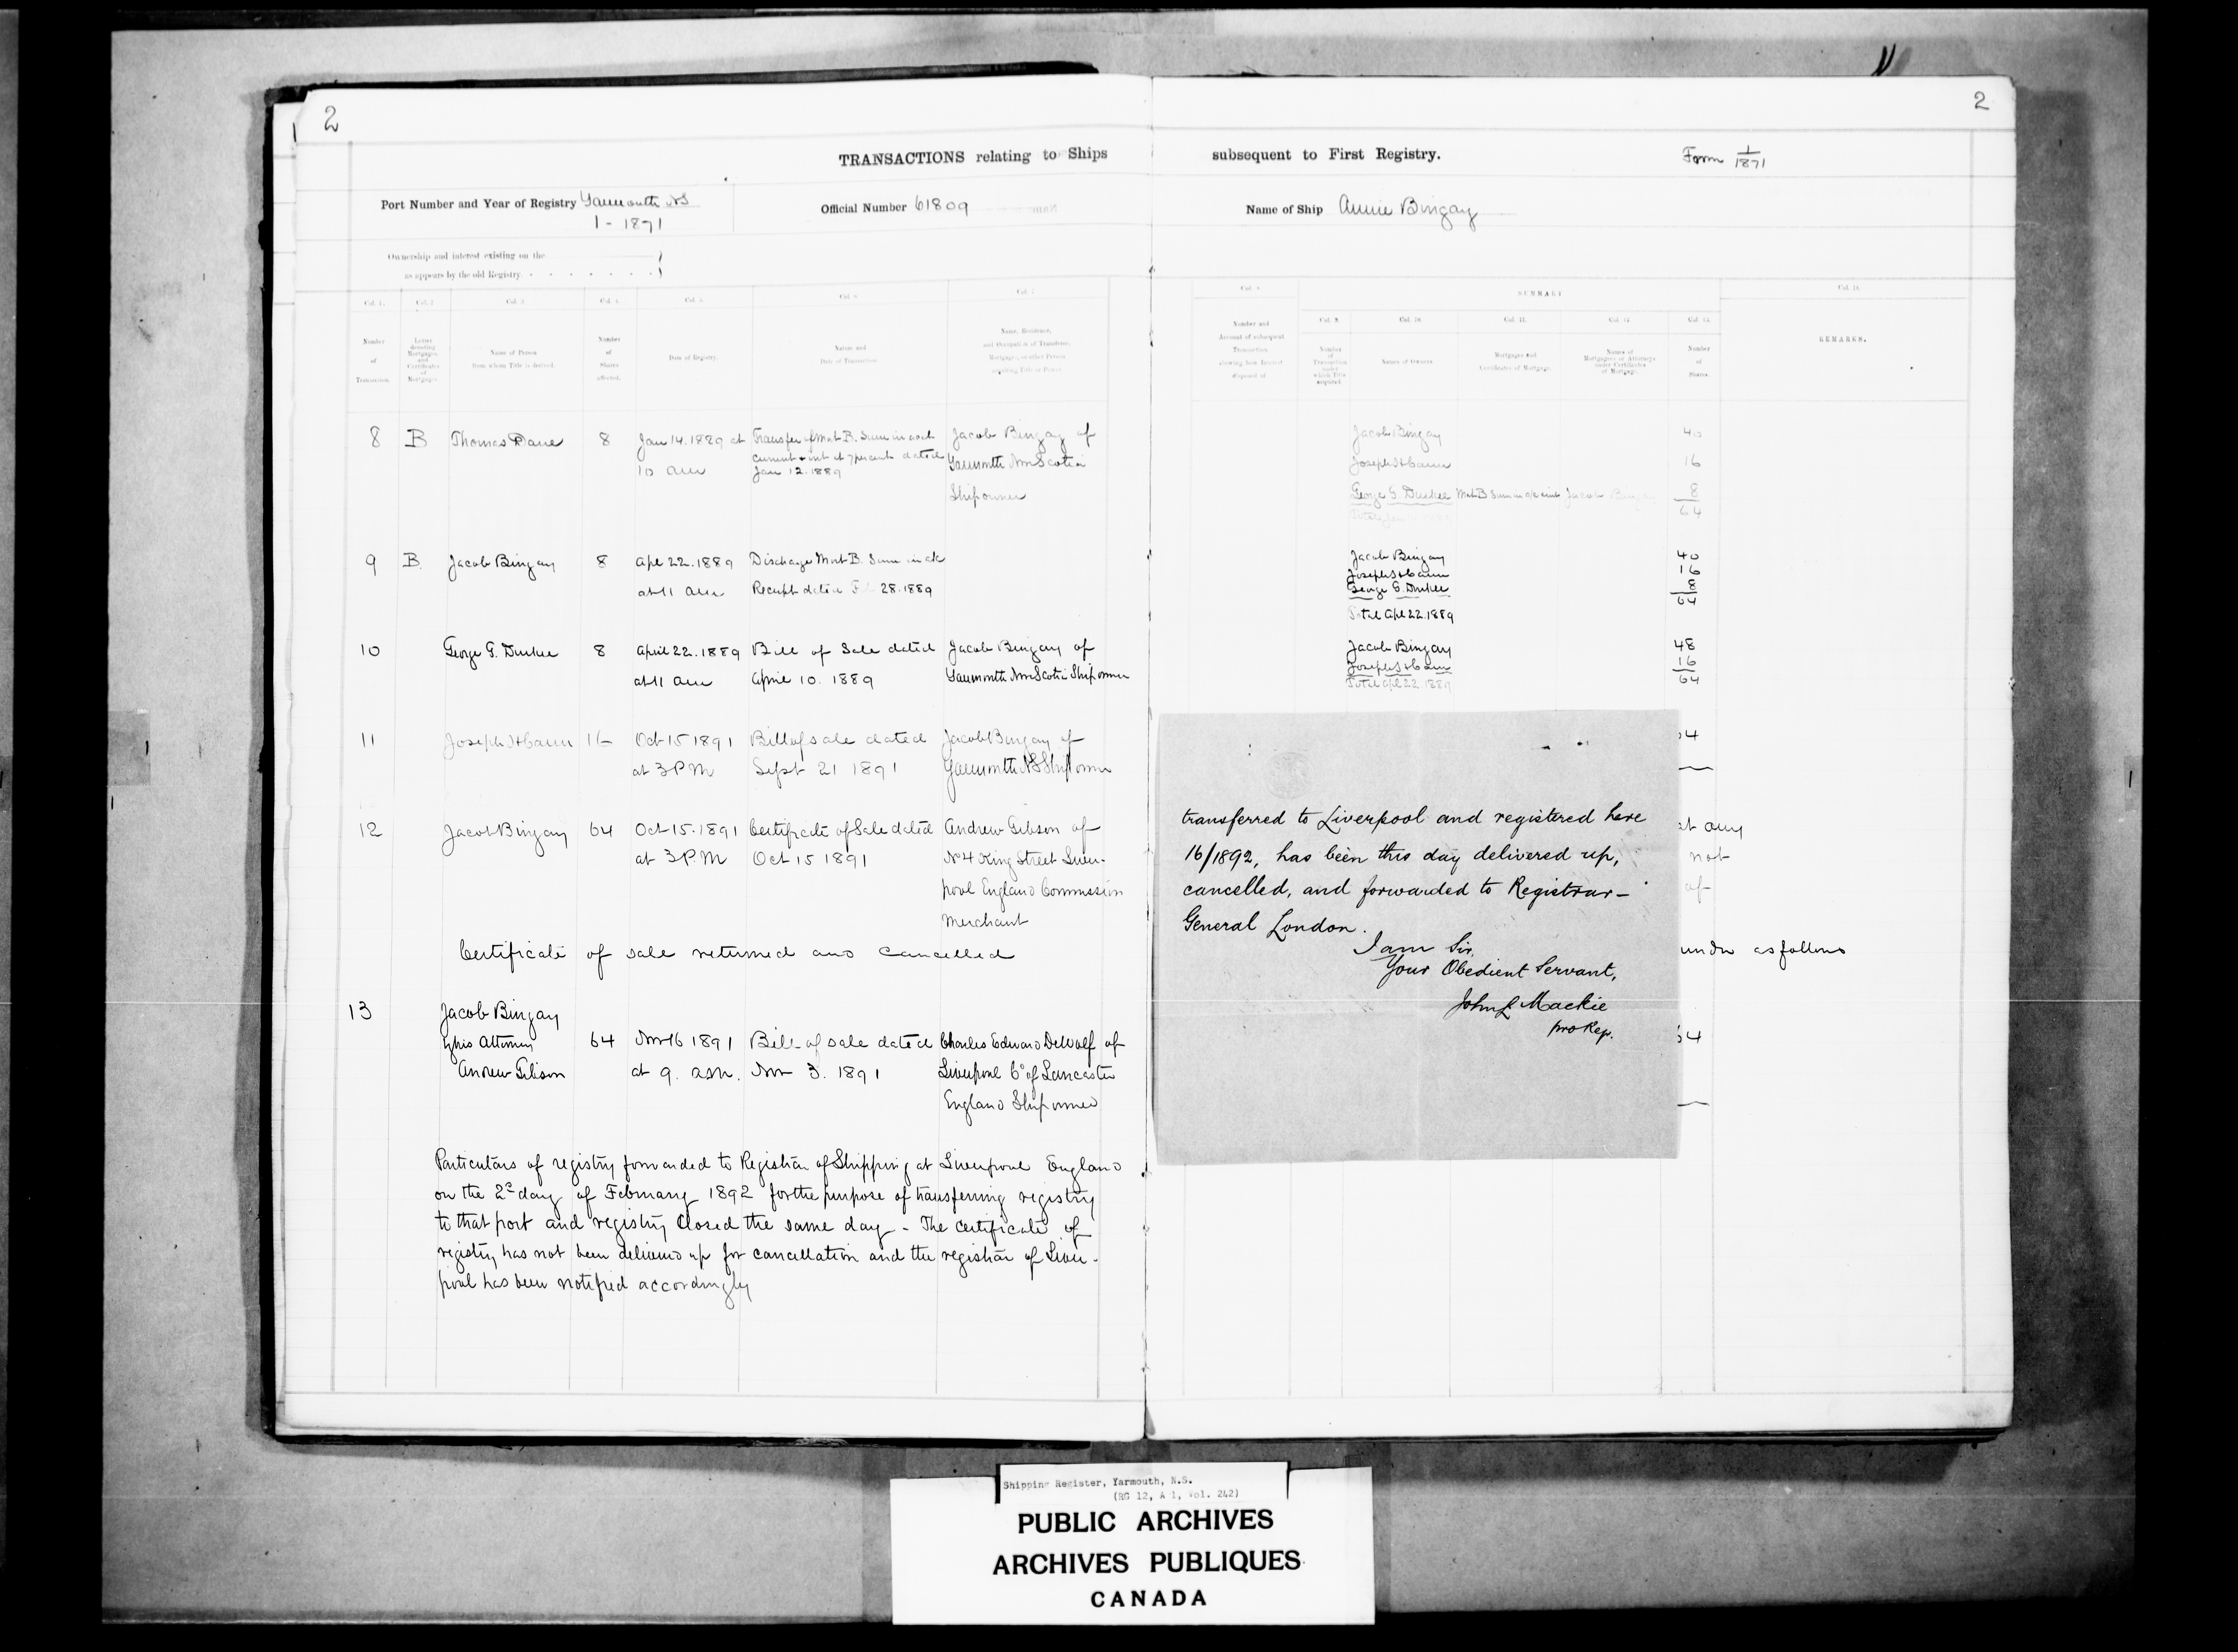 2
2
TRANSACTIONS relating to Ships subsequent to First Registry.
Form 1/1871
Port Number and Year of Registry Yarmouth NS
1 - 1871
Official Number 61809
Name of Ship Annie Bingay
Ownership and interest existing on the
as appears by the old Registry.
Col. 1. Col. 2 Col. 3 Col. 4. Col. 5. Col. 6. Col. 7.
Number of Transaction.
Letter denoting Mortgages and Certificates of Mortgages.
Name of Person from whom Title is derived.
Number of Shares affected.
Date of Registry.
Nature and Date of Transaction
Name, Residence, and Occupation of Transferee, Mortgagee, or other Person acquiring Title or Power
SUMMARY
Number and Account of subsequent Transaction showing how Interest disposed of
Number of Transaction under which Title acquired
Names of Owners
Mortgages and Certificates of Mortgage.
Names of Mortgagees or Attorneys under Certificates of Mortgage.
Number of Shares
REMARKS.
8 B Thomas Dane 8 Jan 14. 1889 at Transfer of Mort B. Sum in acct Jacob Bingay of
10 am current & int at 7 percent dated Yarmouth Nova Scotia
Jan 12. 1889
Ship owner
Jacob Bingay 40
16
George G. Durkee Mort B Sum in a/c & int Jacob Bingay 8
64
9 B. Jacob Bingay 8 Apl 22. 1889 Discharge Mort B. Sum in a/c
at 11 am Receipt dated 28. 1889
Jacob Bingay 40
16
George G. Durkee 8
64
Total Apl 22. 1889
10 George G. Durkee 8 April 22. 1889 Bill of Sale dated Jacob Bingay of
at 11 am April 10. 1889 Yarmouth Nova Scotia Ship owner
Jacob Bingay 48
16
Total Apl 22. 1889 64
11 16 Oct 15 1891 Bill of sale dated Jacob Bingay of
at 3 P M Sept 21 1891 Yarmouth NS Ship owner
12 Jacob Bingay 64 Oct 15. 1891 Certificate of Sale dated Andrew Gibson of
at 3 P. M Oct 15 1891 No 4 King Street Liver-
pool England Commission
Merchant
Certificate of sale returned and cancelled
13 Jacob Bingay
by his Attorney 64 Nov 16 1891 Bill of sale dated Charles Edward DeWolf of
Andrew Gibson at 9. a.m. Nov 3. 1891 Liverpool Co of Lancaster
England Ship owner
Particulars of registry forwarded to Registrar of Shipping at Liverpool England
on the 2d day of February 1892 for the purpose of transferring registry
to that port and registry closed the same day - The certificate of
registry has not been delivered up for cancellation and the registrar of Liver-
pool has been notified accordingly
transferred to Liverpool and registered here
16/1892, has been this day delivered up,
cancelled, and forwarded to Registrar-
General London.
I am Sir,
Your Obedient Servant,
John L Mackie
pro Reg.
at any
not
of
under as follows
Shipping Register, Yarmouth, N.S.
(RG 12, A 1, Vol. 242)
PUBLIC ARCHIVES
ARCHIVES PUBLIQUES
CANADA